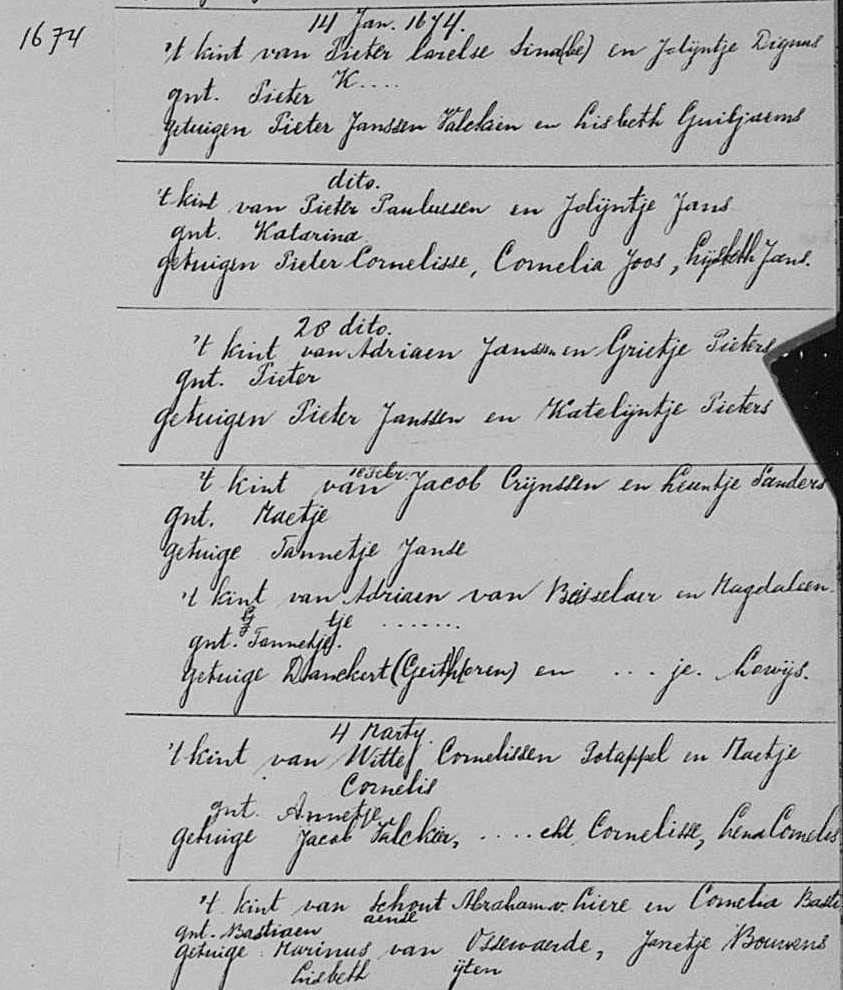 1674
14 Jan. 1674.
't kint van Pieter Carelse Sina(be) en Jolijntje Dignus
gnt. Pieter K....
getuigen Pieter Janssen Valckien en Lisbeth Guiljaems
dito.
't kint van Pieter Paulussen en Jolijntje Jans
gnt. Katarina
getuigen Pieter Cornelisse, Cornelia Joos, Lijsbeth Jans.
28 dito.
't kint van Adriaen Janssen en Grietje Pieters
gnt. Pieter
getuigen Pieter Janssen en Katelijntje Pieters
18 Febr.
't kint van Jacob Crijnssen en Leuntje Sanders
gnt. Maetje
getuige Tannetje Janse
't kint van Adriaen van Bisselaer en Magdaleen.
tje .......
gnt. Tannetje.
getuige Danckert (Geith(oren) en ... je. Lowijs.
4 Marty
't kint van Witte Cornelissen Potappel en Maetje
Cornelis
gnt. Annetje
getuige Jacob Valcker, ....cht Cornelisse, Lena Cornelis
't kint van Schout Abraham v. Liere en Cornelia Basti
aense
gnt. Bastiaen
getuige Marinus van Ossewaerde, Janetje Bouwens
Lisbeth ijten